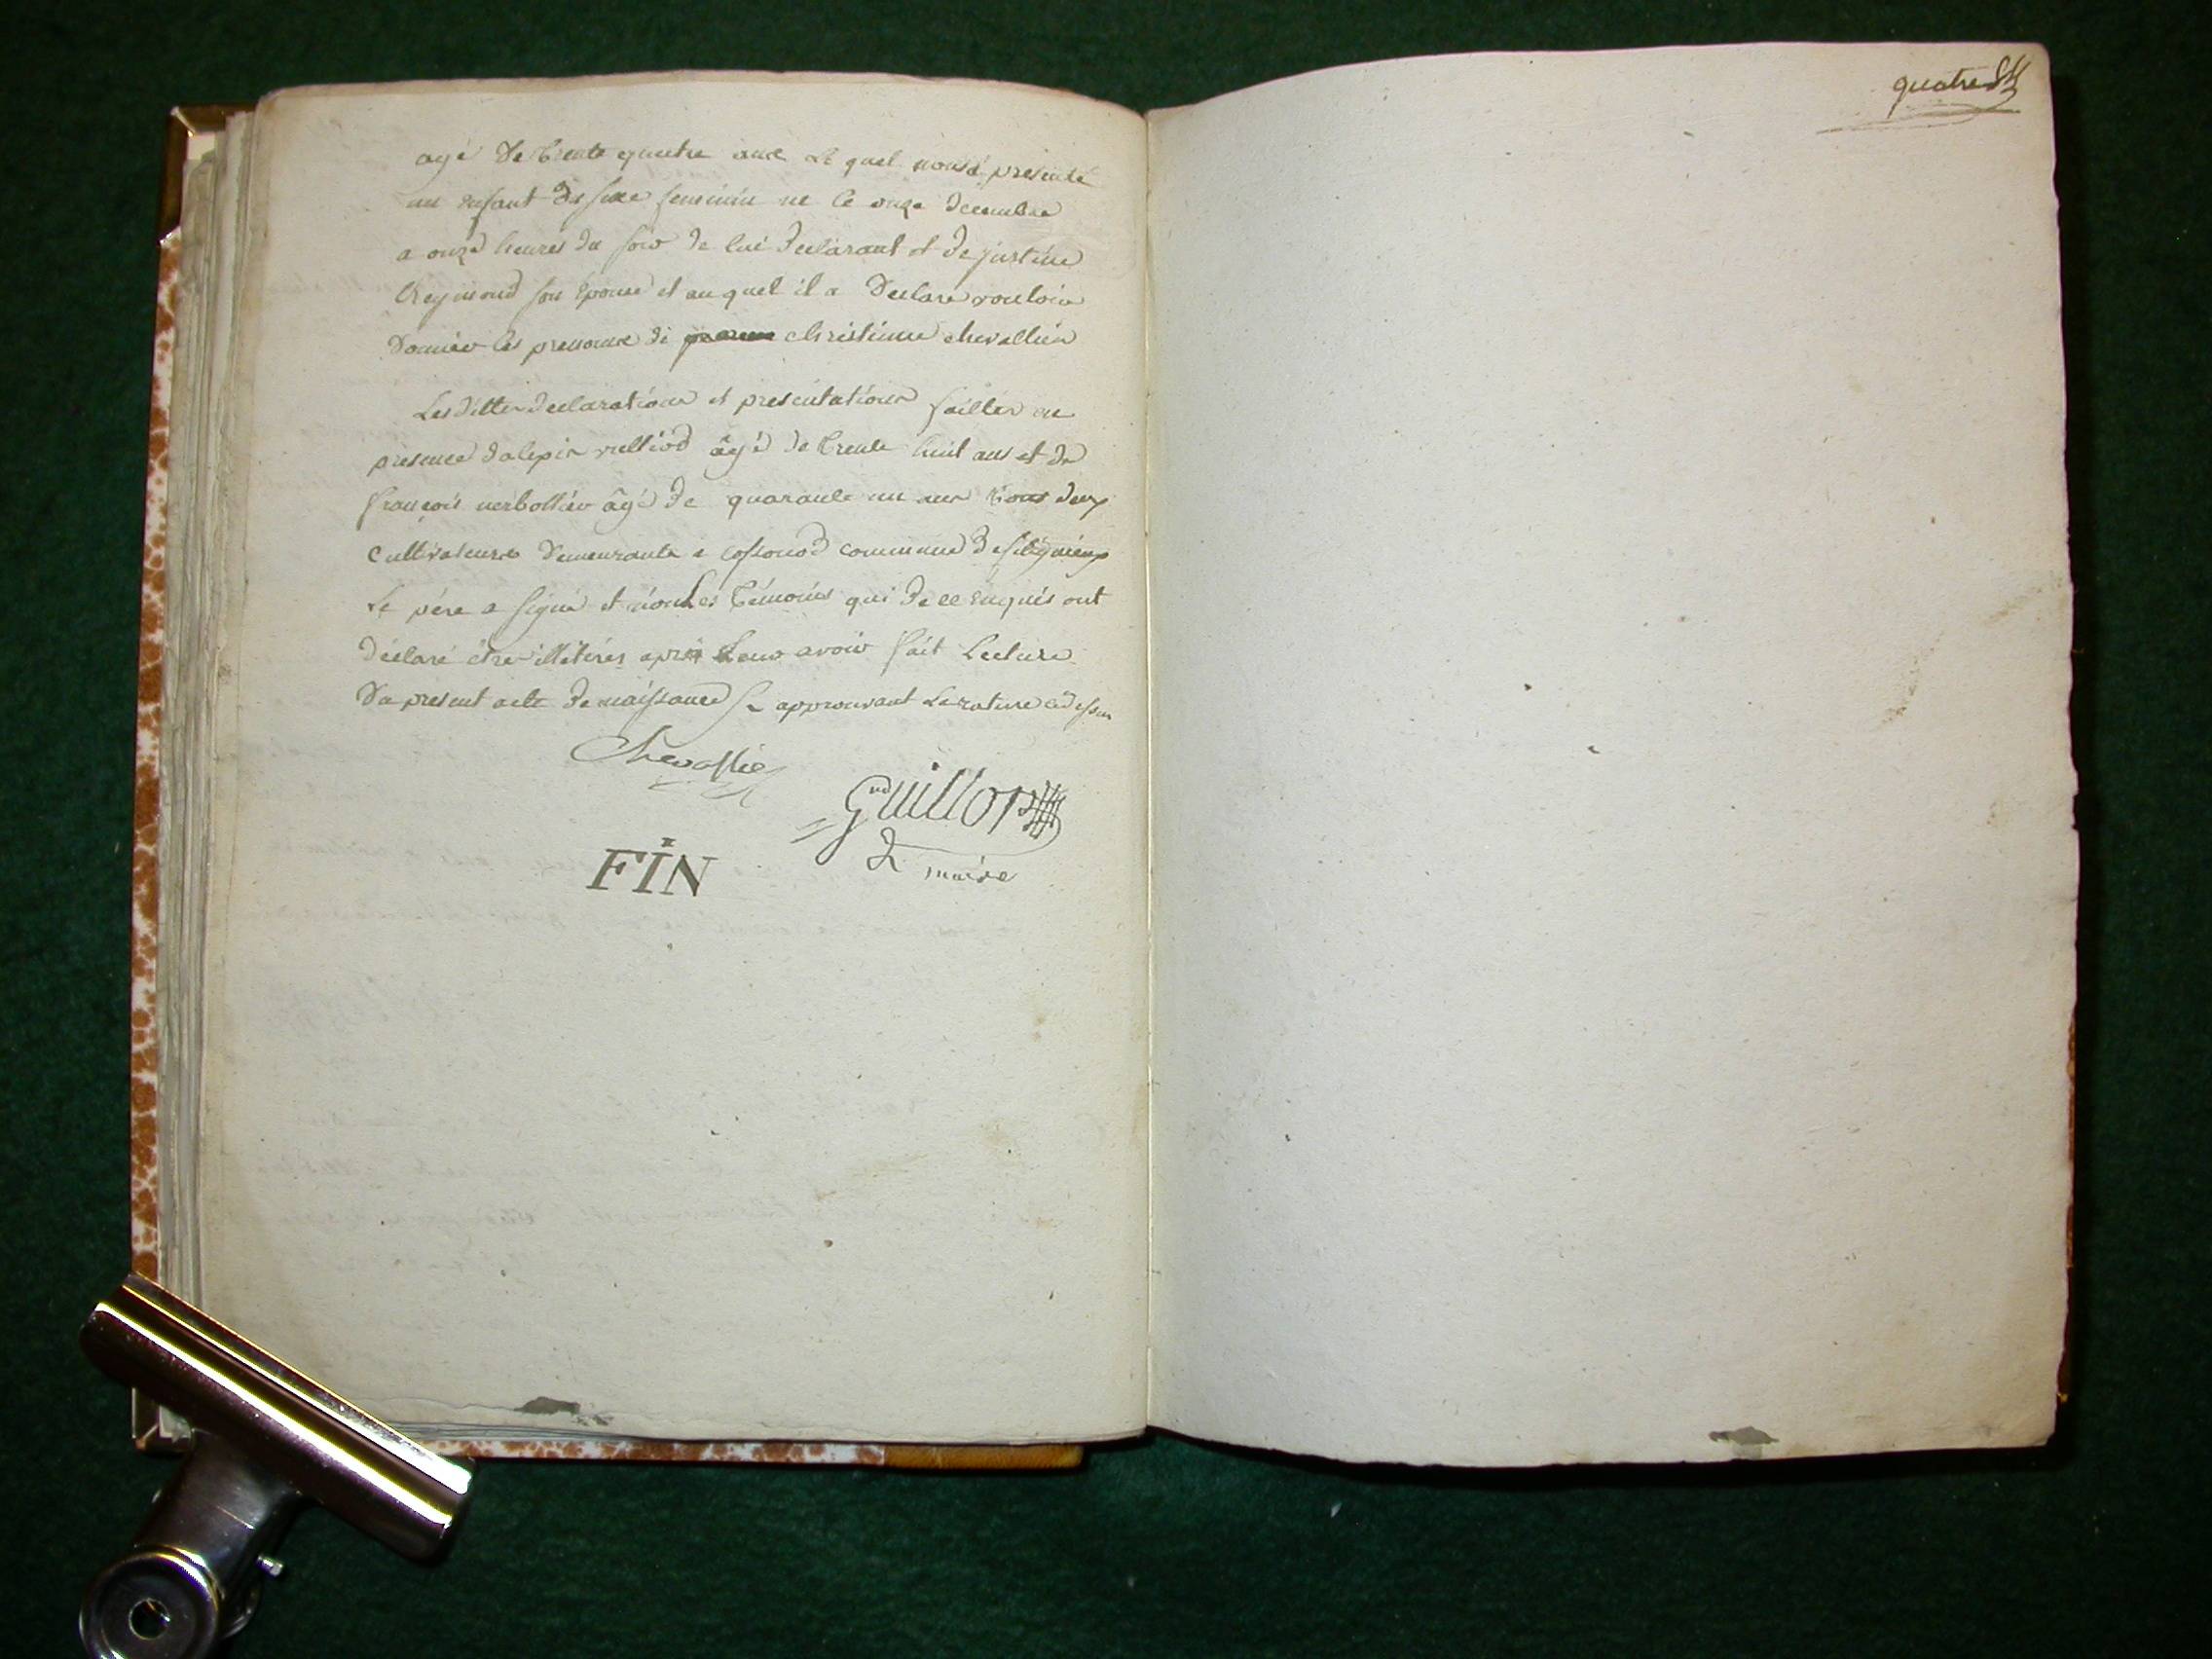 agé de trente quatre ans le quel nous a presenté
un enfant du sexe feminin ne le onze decembre
a onze heures du soir de lui declarant et de justine
Reymond son Epouse et auquel il a declare vouloir
donner les prenoms de christinne chevallier
Les dittes declarations et presentations faittes en
presence âgé de trente huit ans et de
françois âgé de quarante un ans tous deux
cultivateurs demeurants a commune de
Le pére a signé et non Les témoins qui de ce enquis ont
déclaré étre illiterés aprés Leur avoir fait Lecture
du present acte de naissance approuvant La rature cidessus
Chevallier
Guillop
maire
FIN
quatre